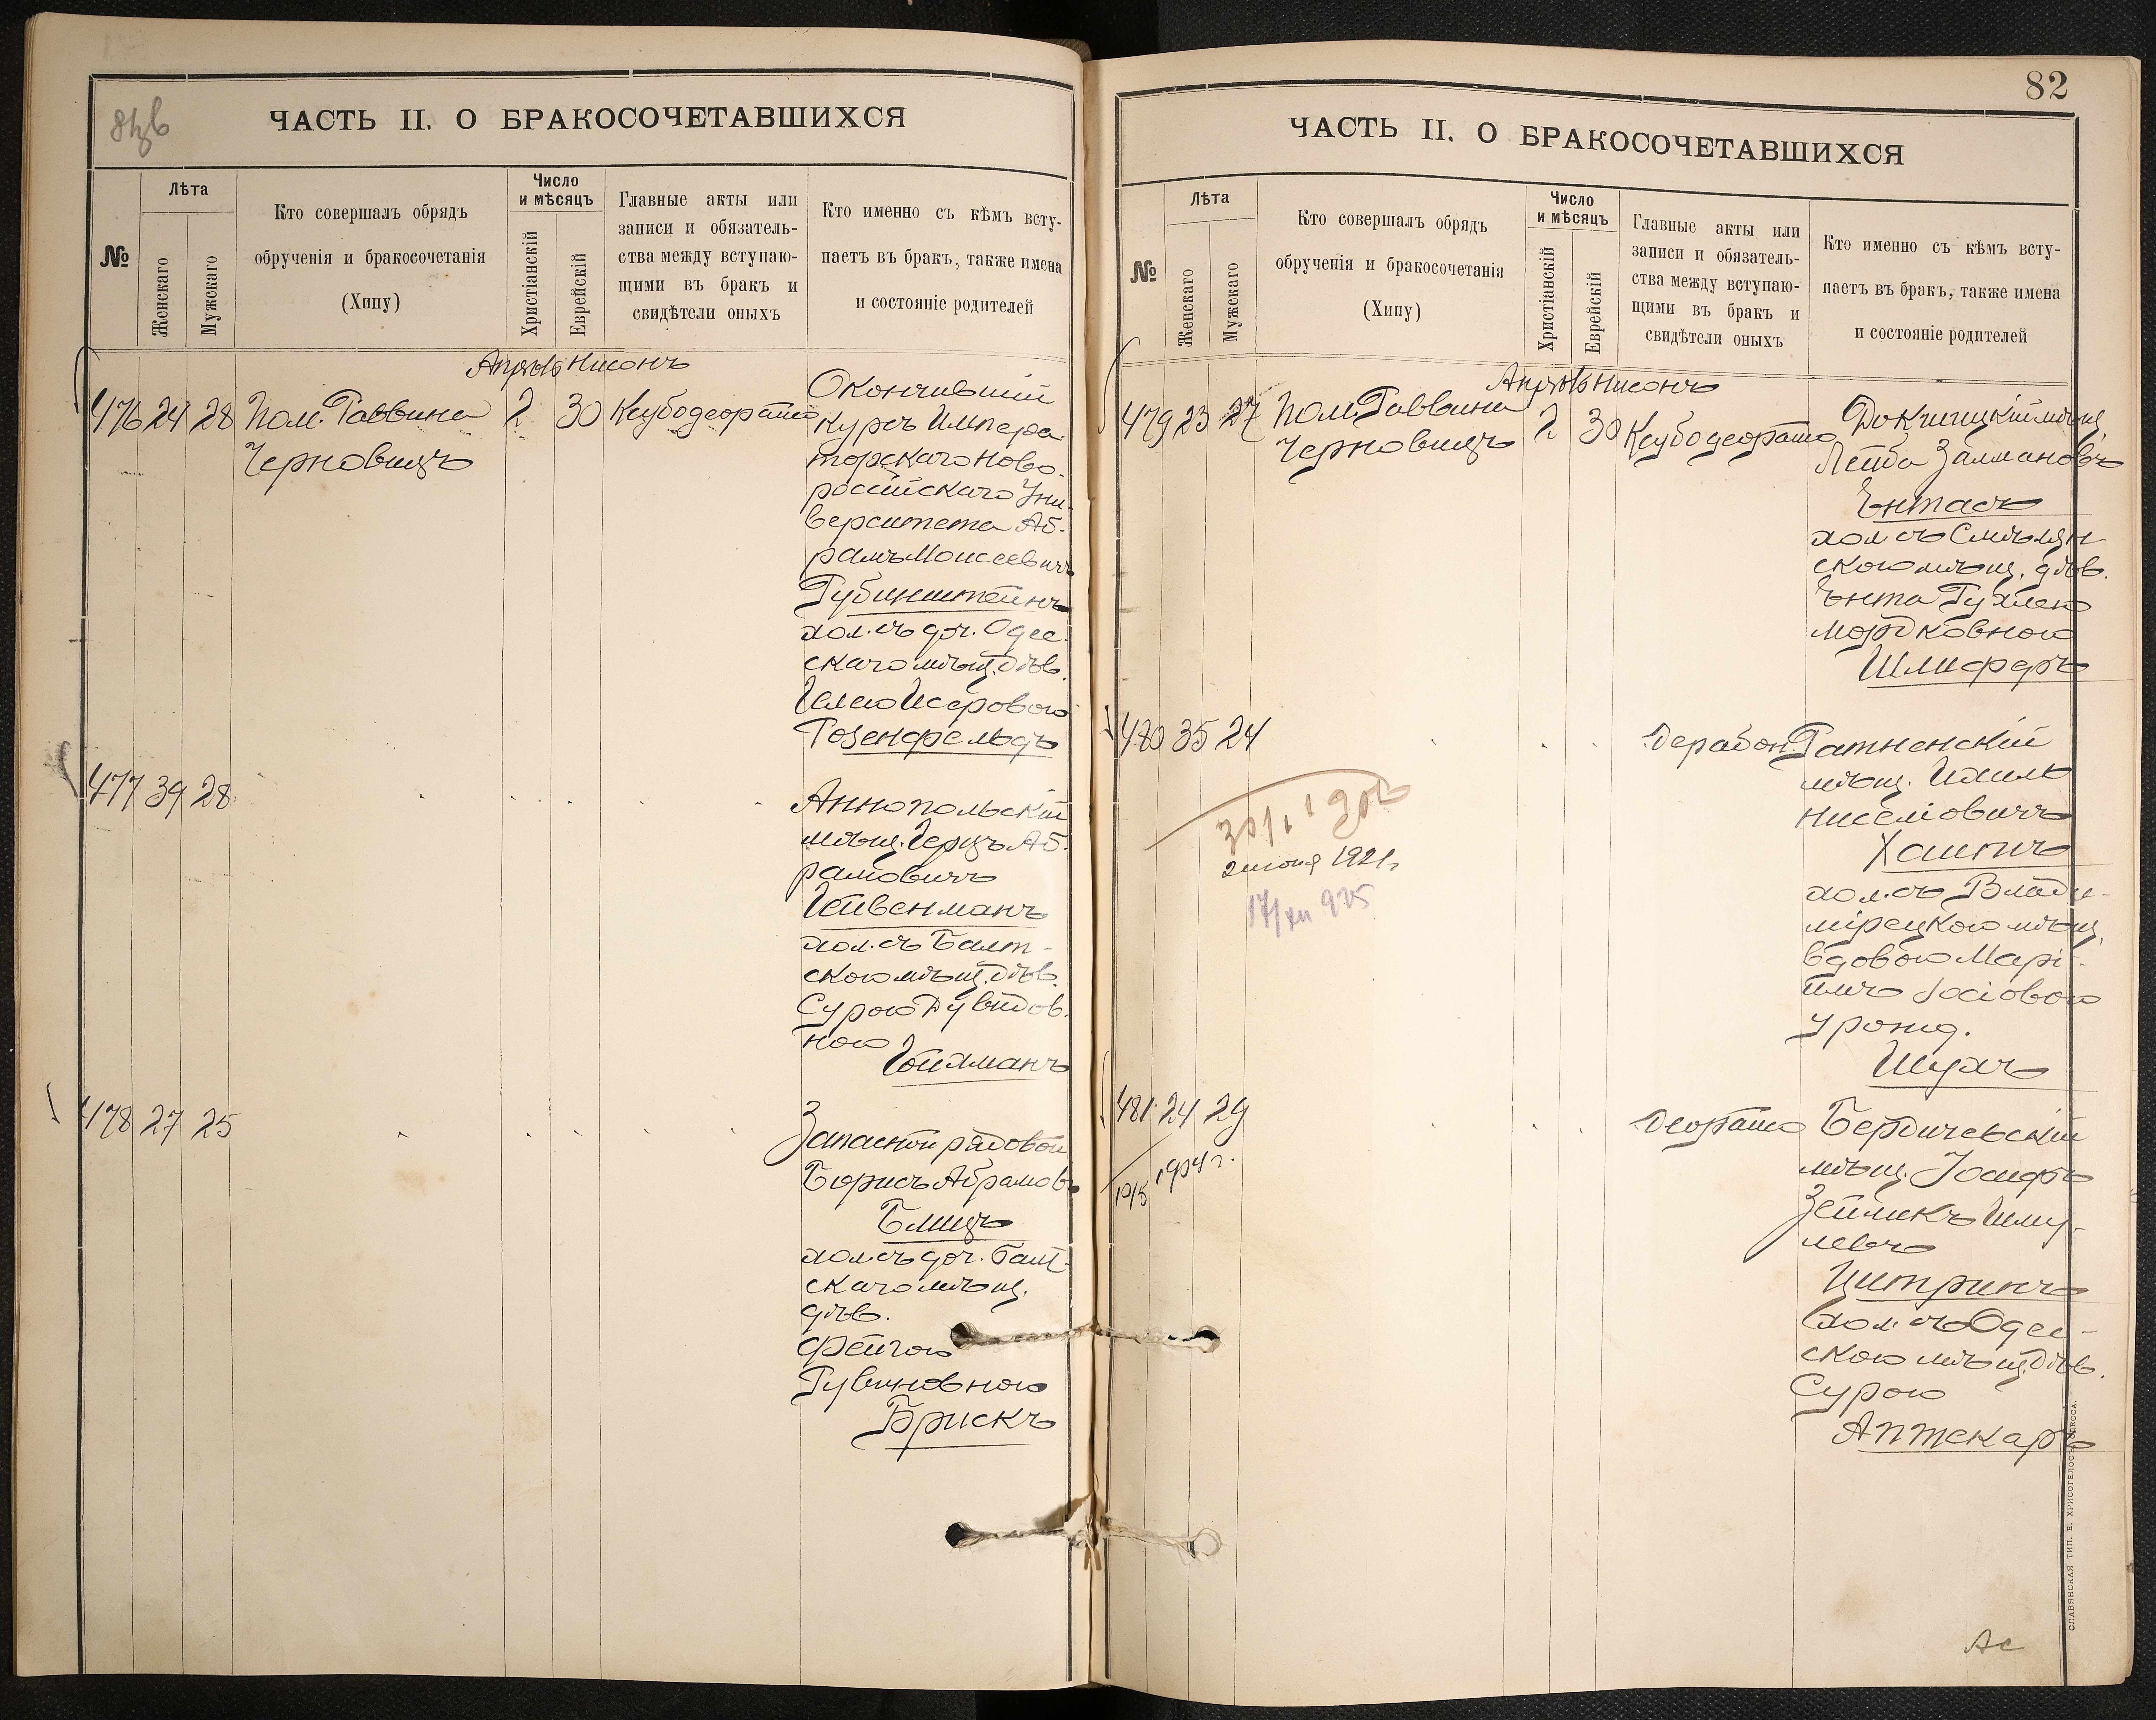 ЧАСТЬ II. О БРАКОСОЧЕТАВШИХСЯ
№
Лѣта
Женскаго
Мужскаго
Кто совершалъ обрядъ
обрученія и бракосочетанія
(Хипу)
Число
и мѣсяцъ
Христіанскій
Еврейскій
Главные акты или
записи и обязатель-
ства между вступаю-
щими въ бракъ и
свидѣтели оныхъ
Кто именно съ кѣмъ всту-
паетъ въ бракъ, также имена
и состояніе родителей
Апрѣль Нисонъ
476 24 28 Пом. Раввина 2 30
Черновицъ
Окончившій
курсъ Импера-
торскаго Ново-
россійскаго Уни-
верситета Аб-
рамъ Моисеевичъ
Рубинштейнъ
хол. съ доч. Одес-
скаго мѣщ. дѣв.
Исеровою
Розенфельдъ
477 39 28
Аннопольскій
мѣщ. Герцъ Аб-
рамовичъ
Гейвенманъ
хол. съ Балт-
скою мѣщ. дѣв.
Сурою Дувидов-
ною
Гойхманъ
478 27 25
Запасной рядовой
Борисъ Абрамовъ
Блицъ
хол. съ доч. Балт-
скаго мѣщ.
дѣв.
Фейгою
Рувиновною
Брискъ
82
ЧАСТЬ II. О БРАКОСОЧЕТАВШИХСЯ
№
Лѣта
Женскаго
Мужскаго
Кто совершалъ обрядъ
обрученія и бракосочетанія
(Хипу)
Число
и мѣсяцъ
Христіанскій
Еврейскій
Главные акты или
записи и обязатель-
ства между вступаю-
щими въ бракъ и
свидѣтели оныхъ
Кто именно съ кѣмъ всту-
паетъ въ бракъ, также имена
и состояніе родителей
Апрѣль Нисонъ
479 23 27 Пом. Раввина 2 30
Черновицъ
Докшицкій мѣщ.
Лейба Залмановъ
Энтасъ
хол. съ Смѣлян-
скою мѣщ. дѣв.
Энта Рухлею
Мордковною
Шлифферъ
480 35 24
Ратненскій
мѣщ. Ихиль
Ниселіовичъ
Хаитъ
хол. съ Влади-
мірецкою мѣщ.
вдовою Марі-
Іосіовою
урожд.
Шухъ
2 июня 1921 г.
17/XII 925
481 24 29
Бердичевскій
мѣщ. Іосифъ
Зейликъ Шму-
левъ
Цитринъ
хол. съ Одес-
скою мѣщ. дѣв.
Сурою
Аптекарь
10/5 1904 г.
СЛАВЯНСКАЯ ТИП. Е. ХРИСОГЕЛОСЪ ОДЕССА.